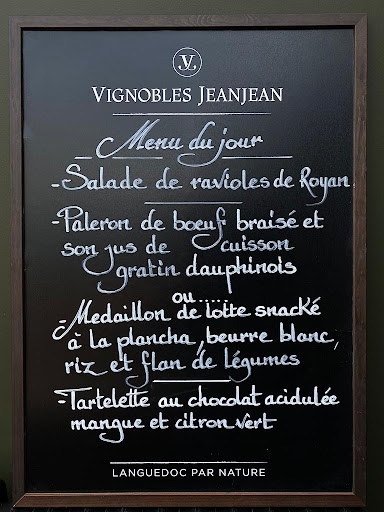 VJ
VIGNOBLES JEANJEAN
Menu du jour
- Salade de ravioles de Royan
- Paleron de boeuf braisé et
son jus de cuisson
gratin dauphinois
ou.....
- Medaillon de lotte snacké
à la plancha, beurre blanc,
riz et flan de légumes
- Tartelette au chocolat acidulée
mangue et citron vert
LANGUEDOC PAR NATURE